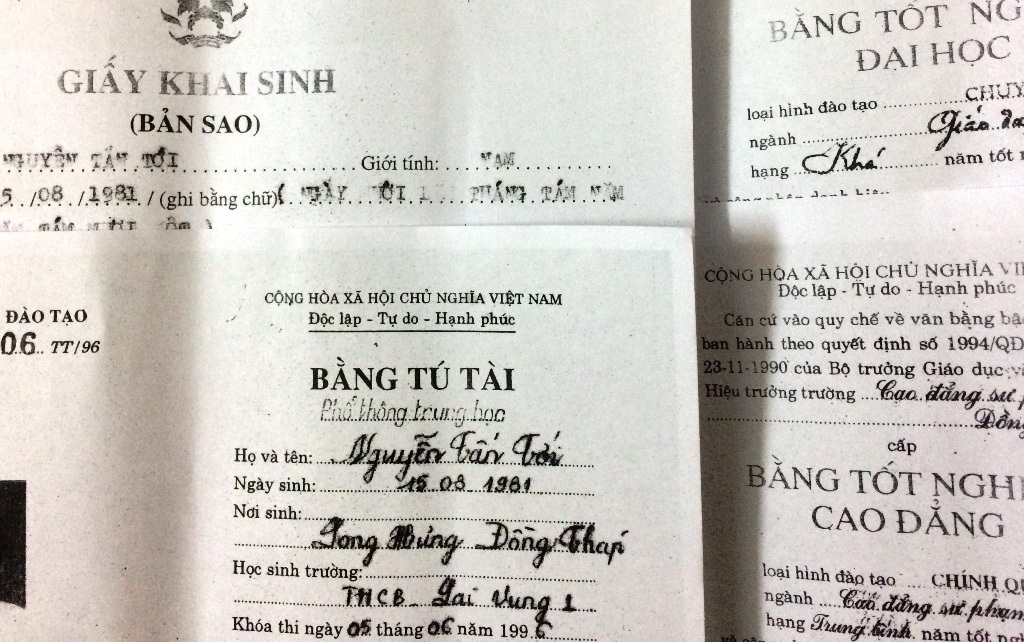 GIẤY KHAI SINH
(BẢN SAO)
NGUYỄN TẤN TỚI Giới tính: NAM
5 /08 /1981 / (ghi bằng chữ) ( NGÀY MƯỜI THÁNG TÁM NĂM
TÁM MƯƠI
ĐÀO TẠO
06 TT/96
CỘNG HÒA XÃ HỘI CHỦ NGHĨA VIỆT NAM
Độc lập - Tự do - Hạnh phúc
BẰNG TÚ TÀI
Phổ thông trung học
Họ và tên: Nguyễn Tấn Tới
Ngày sinh: 15 08 1981
Nơi sinh:
Long Hưng Đồng Tháp
Học sinh trường:
THCB Lai Vung 1
Khóa thi ngày 05 tháng 06 năm 199
BẰNG TỐT NG
ĐẠI HỌC
loại hình đào tạo CHUY
ngành Giáo
hạng Khá năm tốt
CỘNG HÒA XÃ HỘI CHỦ NGHĨA VI
Độc lập - Tự do - Hạnh phúc
Căn cứ vào quy chế về văn bằng bậ
ban hành theo quyết định số 1994/QĐ
23-11-1990 của Bộ trưởng Giáo dục và
Hiệu trưởng trường Cao đẳng sư p
Đồng
cấp
BẰNG TỐT NGHI
CAO ĐẲNG
loại hình đào tạo CHÍNH QU
ngành Cao đẳng sư phạm
hạng Trung bình năm tốt ng